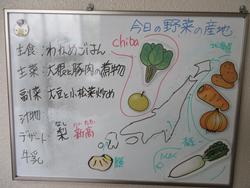 今日の野菜の産地
主食：わかめごはん
主菜：大根と豚肉の煮物
副菜：大豆と小松菜炒め
汁物
デザート 梨 新高
なし にいたか
牛乳
chiba